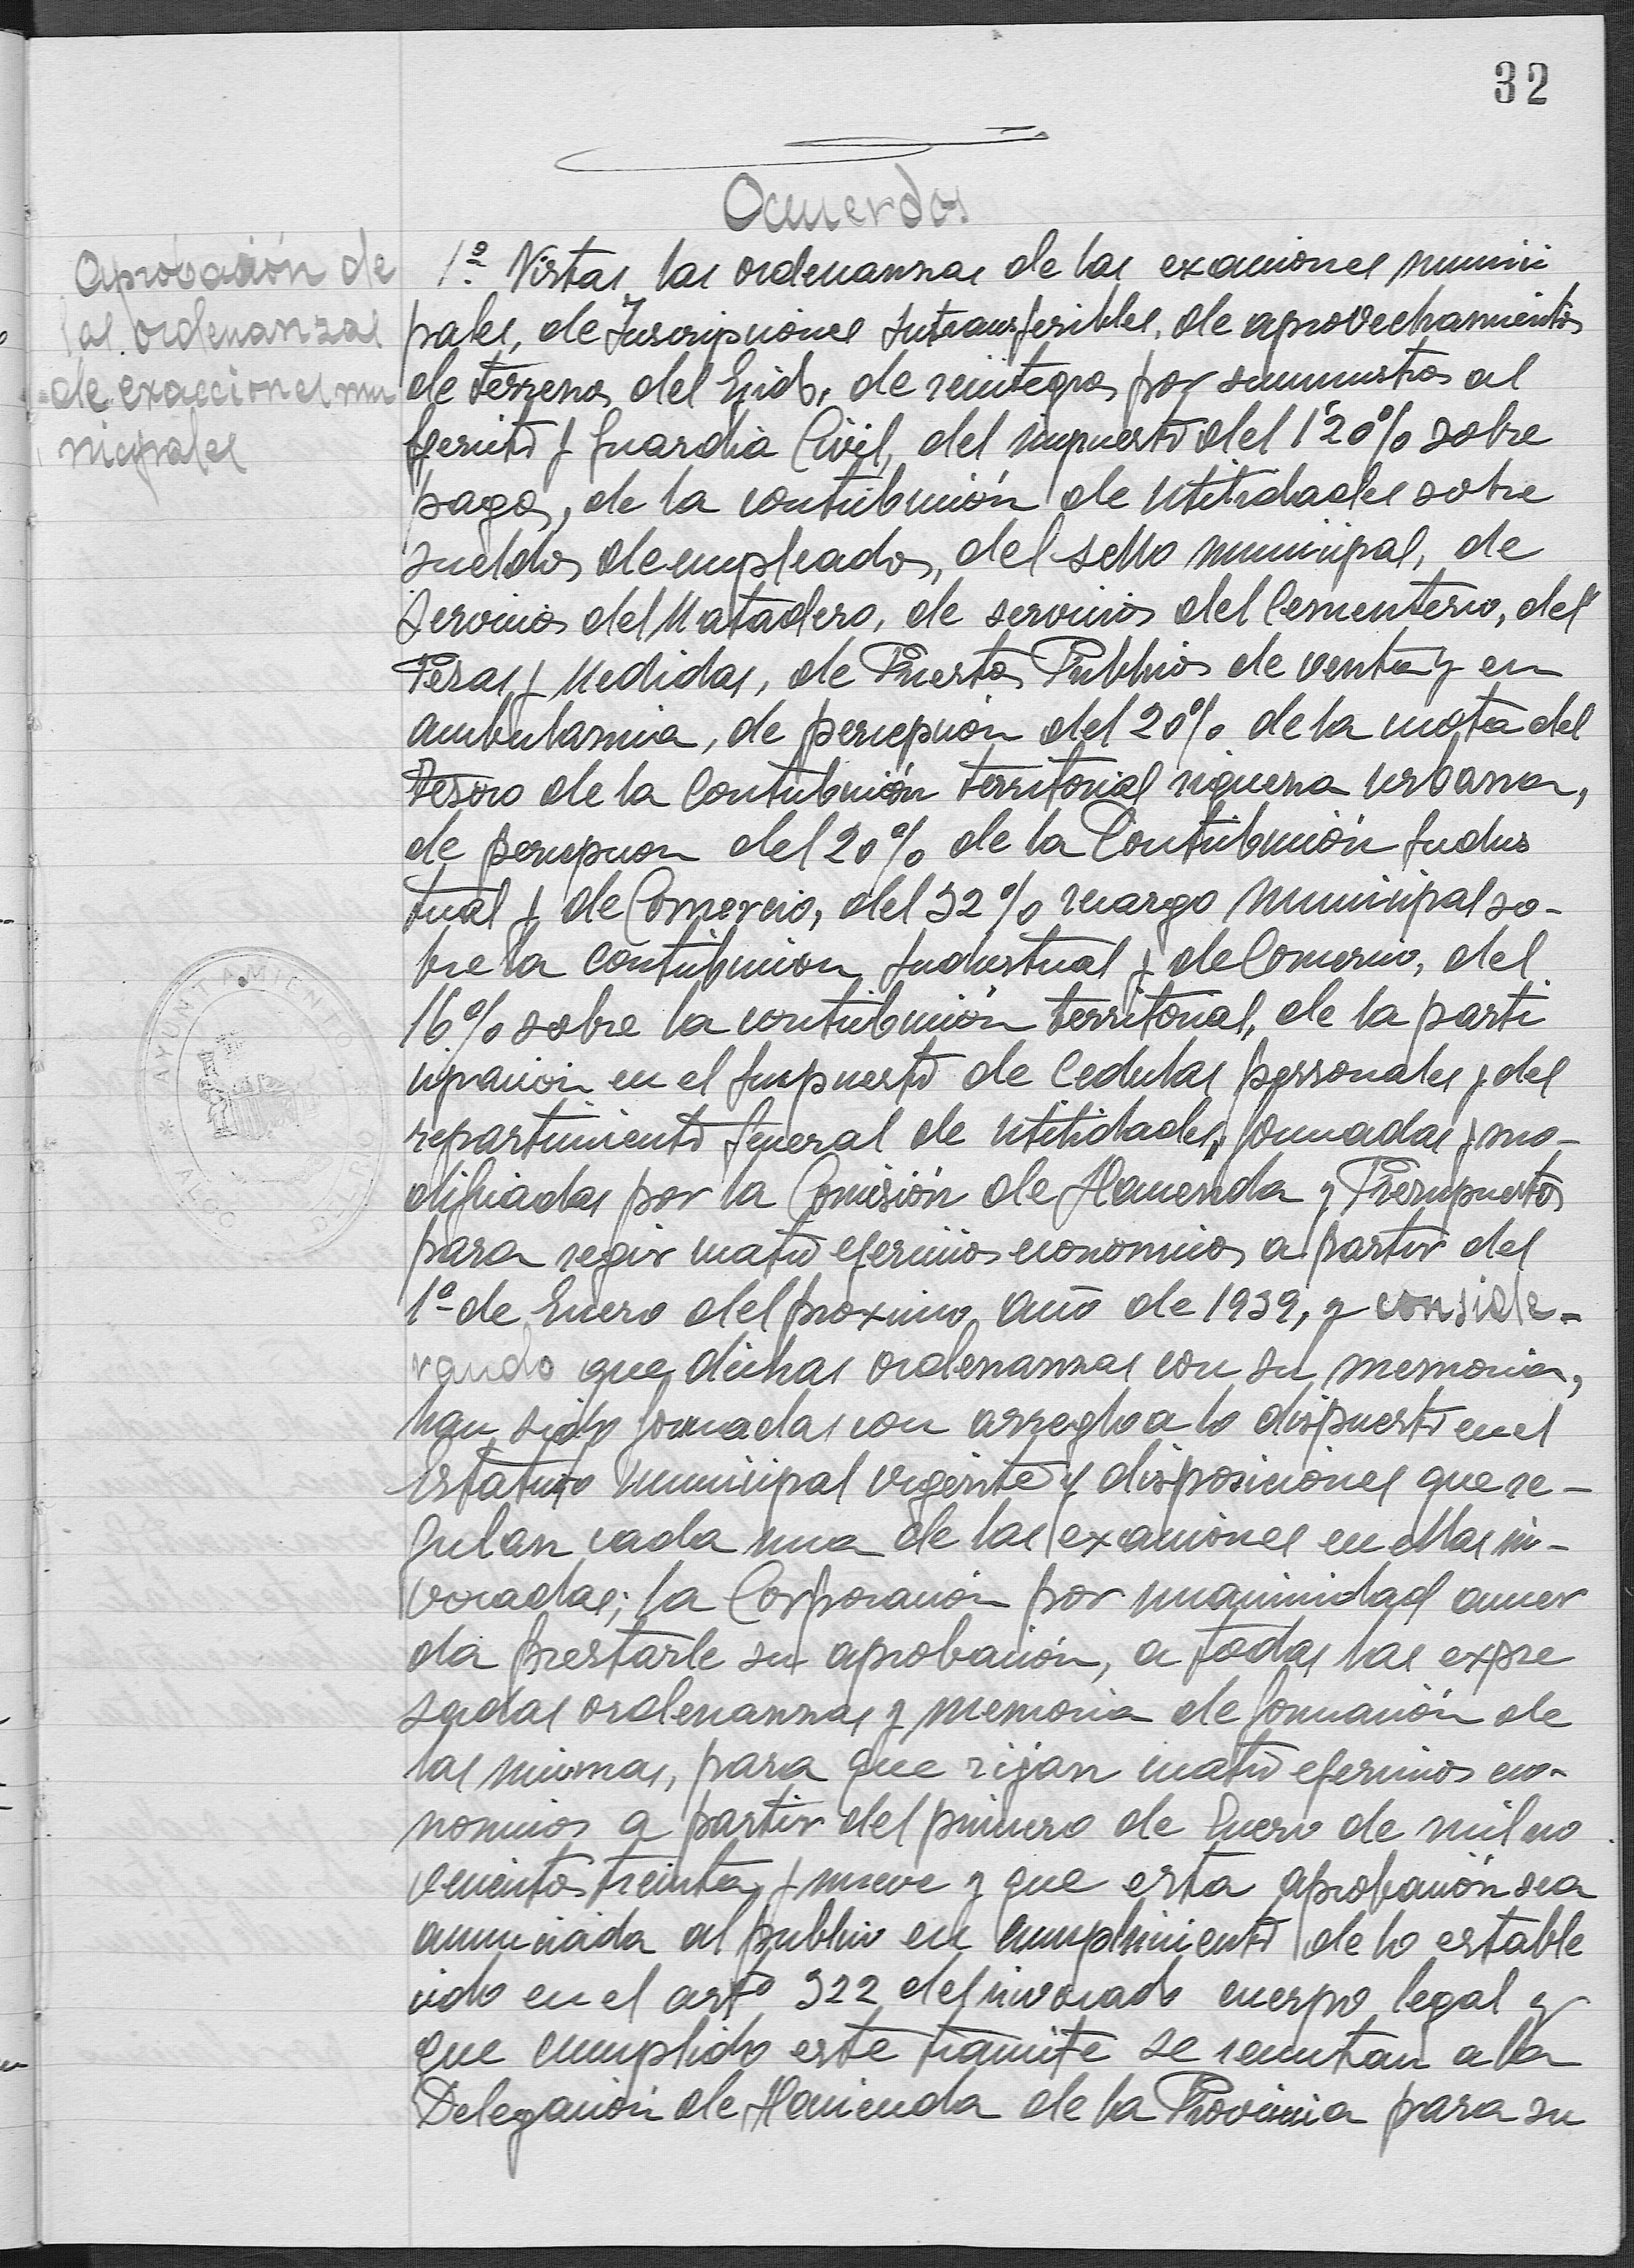 32
Acuerdos
Aprobación de
las ordenanzas
de exacciones mu
nicipales
1º Vistas las ordenanzas de las exacciones munici
pales, de Inscripciones Intransferibles, de aprovechamientos
de terrenos del Ejido, de reintegros por suministros al
Ejercito y Guardia Civil, del impuesto del 1'20% sobre
pagos, de la contribución de utilidades sobre
sueldos de empleados, del sello municipal, de
Servicios del Matadero, de servicios del Cementerio, del
Pesas y Medidas, de Puestos Publicos de venta y en
ambulancia, de percepción del 20% de la cuota del
Tesoro de la Contribución territorial riqueza urbana,
de percepcion del 20% de la Contribución Indus
trial y de Comercio, del 32% recargo municipal so-
bre la contribucion Industrial y de Comercio, del
16% sobre la contribución territorial, de la parti
cipación en el Impuesto de Cedulas personales y del
repartimiento general de utilidades, formadas y mo-
dificadas por la Comisión de Hacienda y Presupuestos
para regir cuatro ejercicios economicos a partir del
1º de Enero del proximo año de 1939, y conside-
rando que dichas ordenanzas con su memoria,
han sido formadas con arreglo a lo dispuesto en el
Estatuto municipal vigente y disposiciones que re-
gulan cada una de las exacciones en ellas in-
vocadas; la Corporación por unanimidad acuer
da prestarle su aprobación, a todas las expre
sadas ordenanzas y memoria de formación de
las mismas, para que rijan cuatro ejercicios eco-
nomicos a partir del primero de Enero de mil no
vecientos treinta y nueve y que esta aprobación sea
anunciada al publico en cumplimiento de lo estable
cido en el artº 322 del invocado cuerpo legal y
que cumplido este tramite se remitan a la
Delegación de Hacienda de la Provincia para su
* AYUNTAMIENTO *
ALCO
DEL RIO